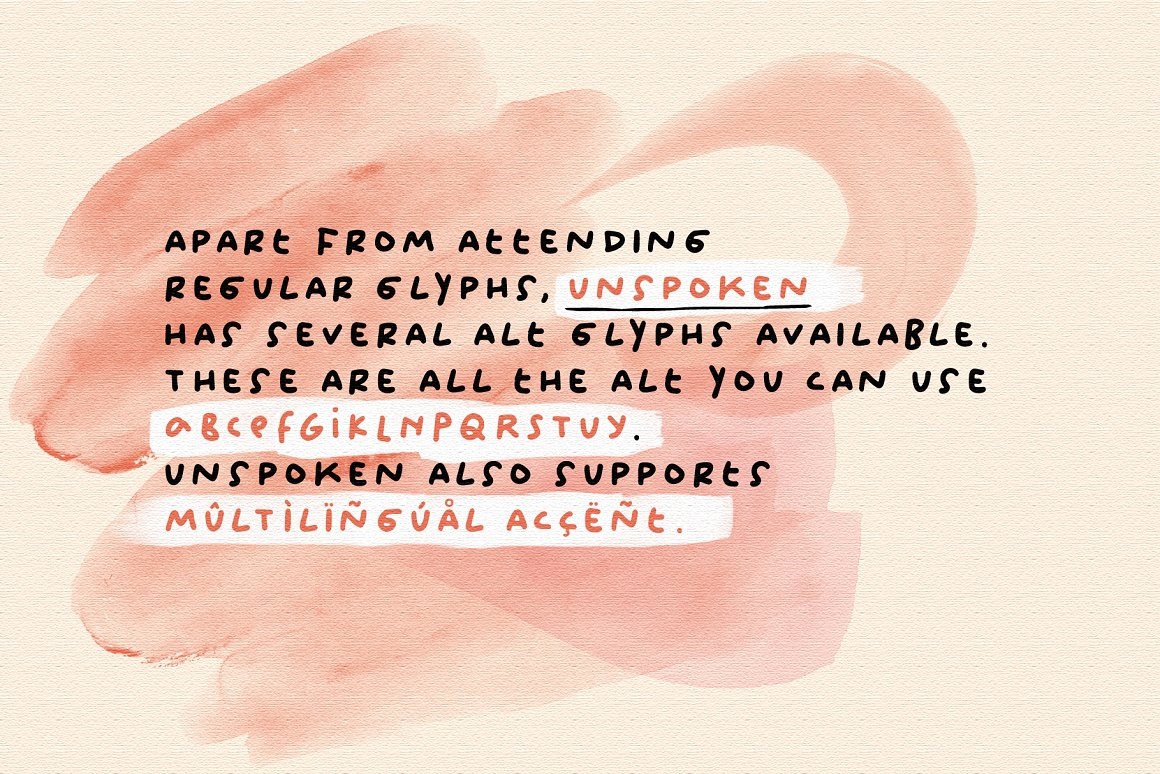 APART FROM AttENDING
REGULAR GLYPHS, UNSPOKEN
HAS SEVERAL ALt GLYPHS AVAILABLE.
THESE ARE ALL tHE ALt YOU CAN USE
aBCefGiKLNPQRSTUY.
UNSPOKEN ALSO SUPPORtS
MÛLTÌLÏÑGÚÅL ACÇËÑt.